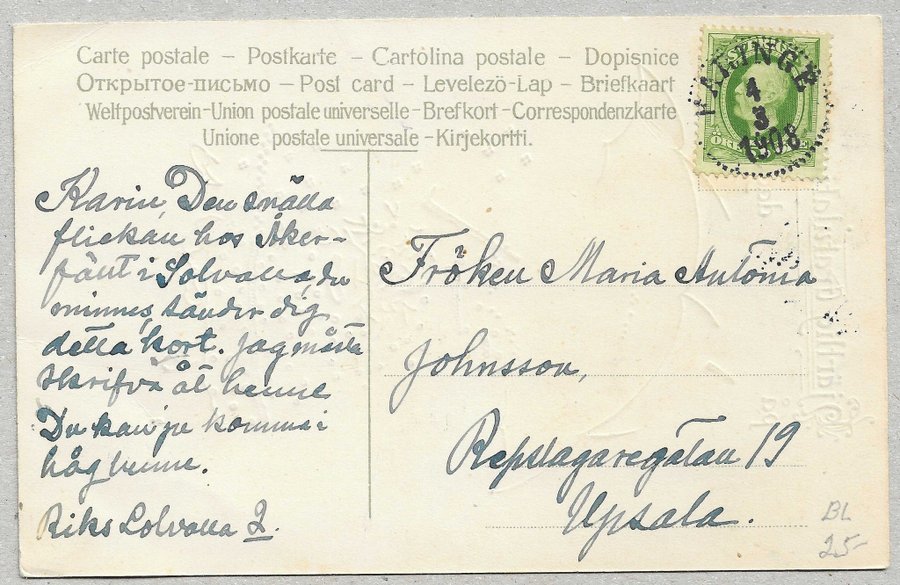 Carte postale – Postkarte – Cartolina postale – Dopisnice
Открытое-письмо – Post card – Levelezö-Lap – Briefkaart
Weltpostverein-Union postale universelle-Brefkort-Correspondenzkarte
Unione postale universale -Kirjekortti.
4
3
1908
Karin, Den snälla
flickan hos Åker-
fänt i Solvalla, du
minnes, sänder dig
detta kort. Jag måste
skrifva åt henne
Du kan ju komma i
håg henne.
Riks Solvalla 2.
Fröken Maria Antonia
Johnsson,
Repslagaregatan 19
Upsala.
BL
25-